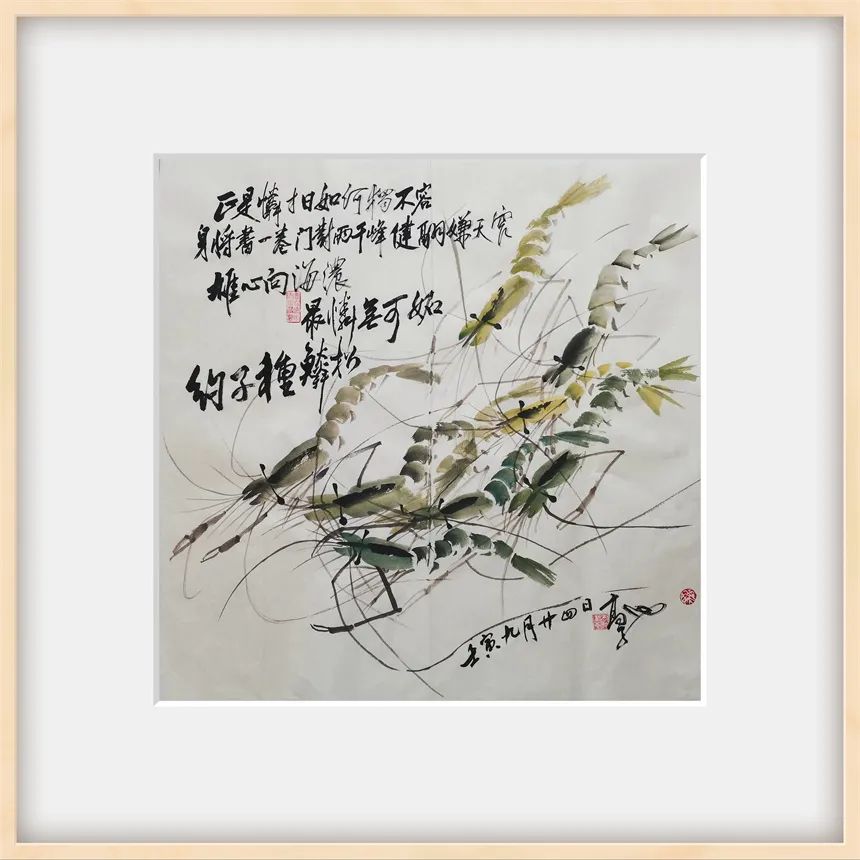 正是憐才日如何獨不容
身將書一卷门對兩千峰健翮嫌天窄
雄心向海濃
最憐無可如
約子種鱗松
壬寅九月廿四日